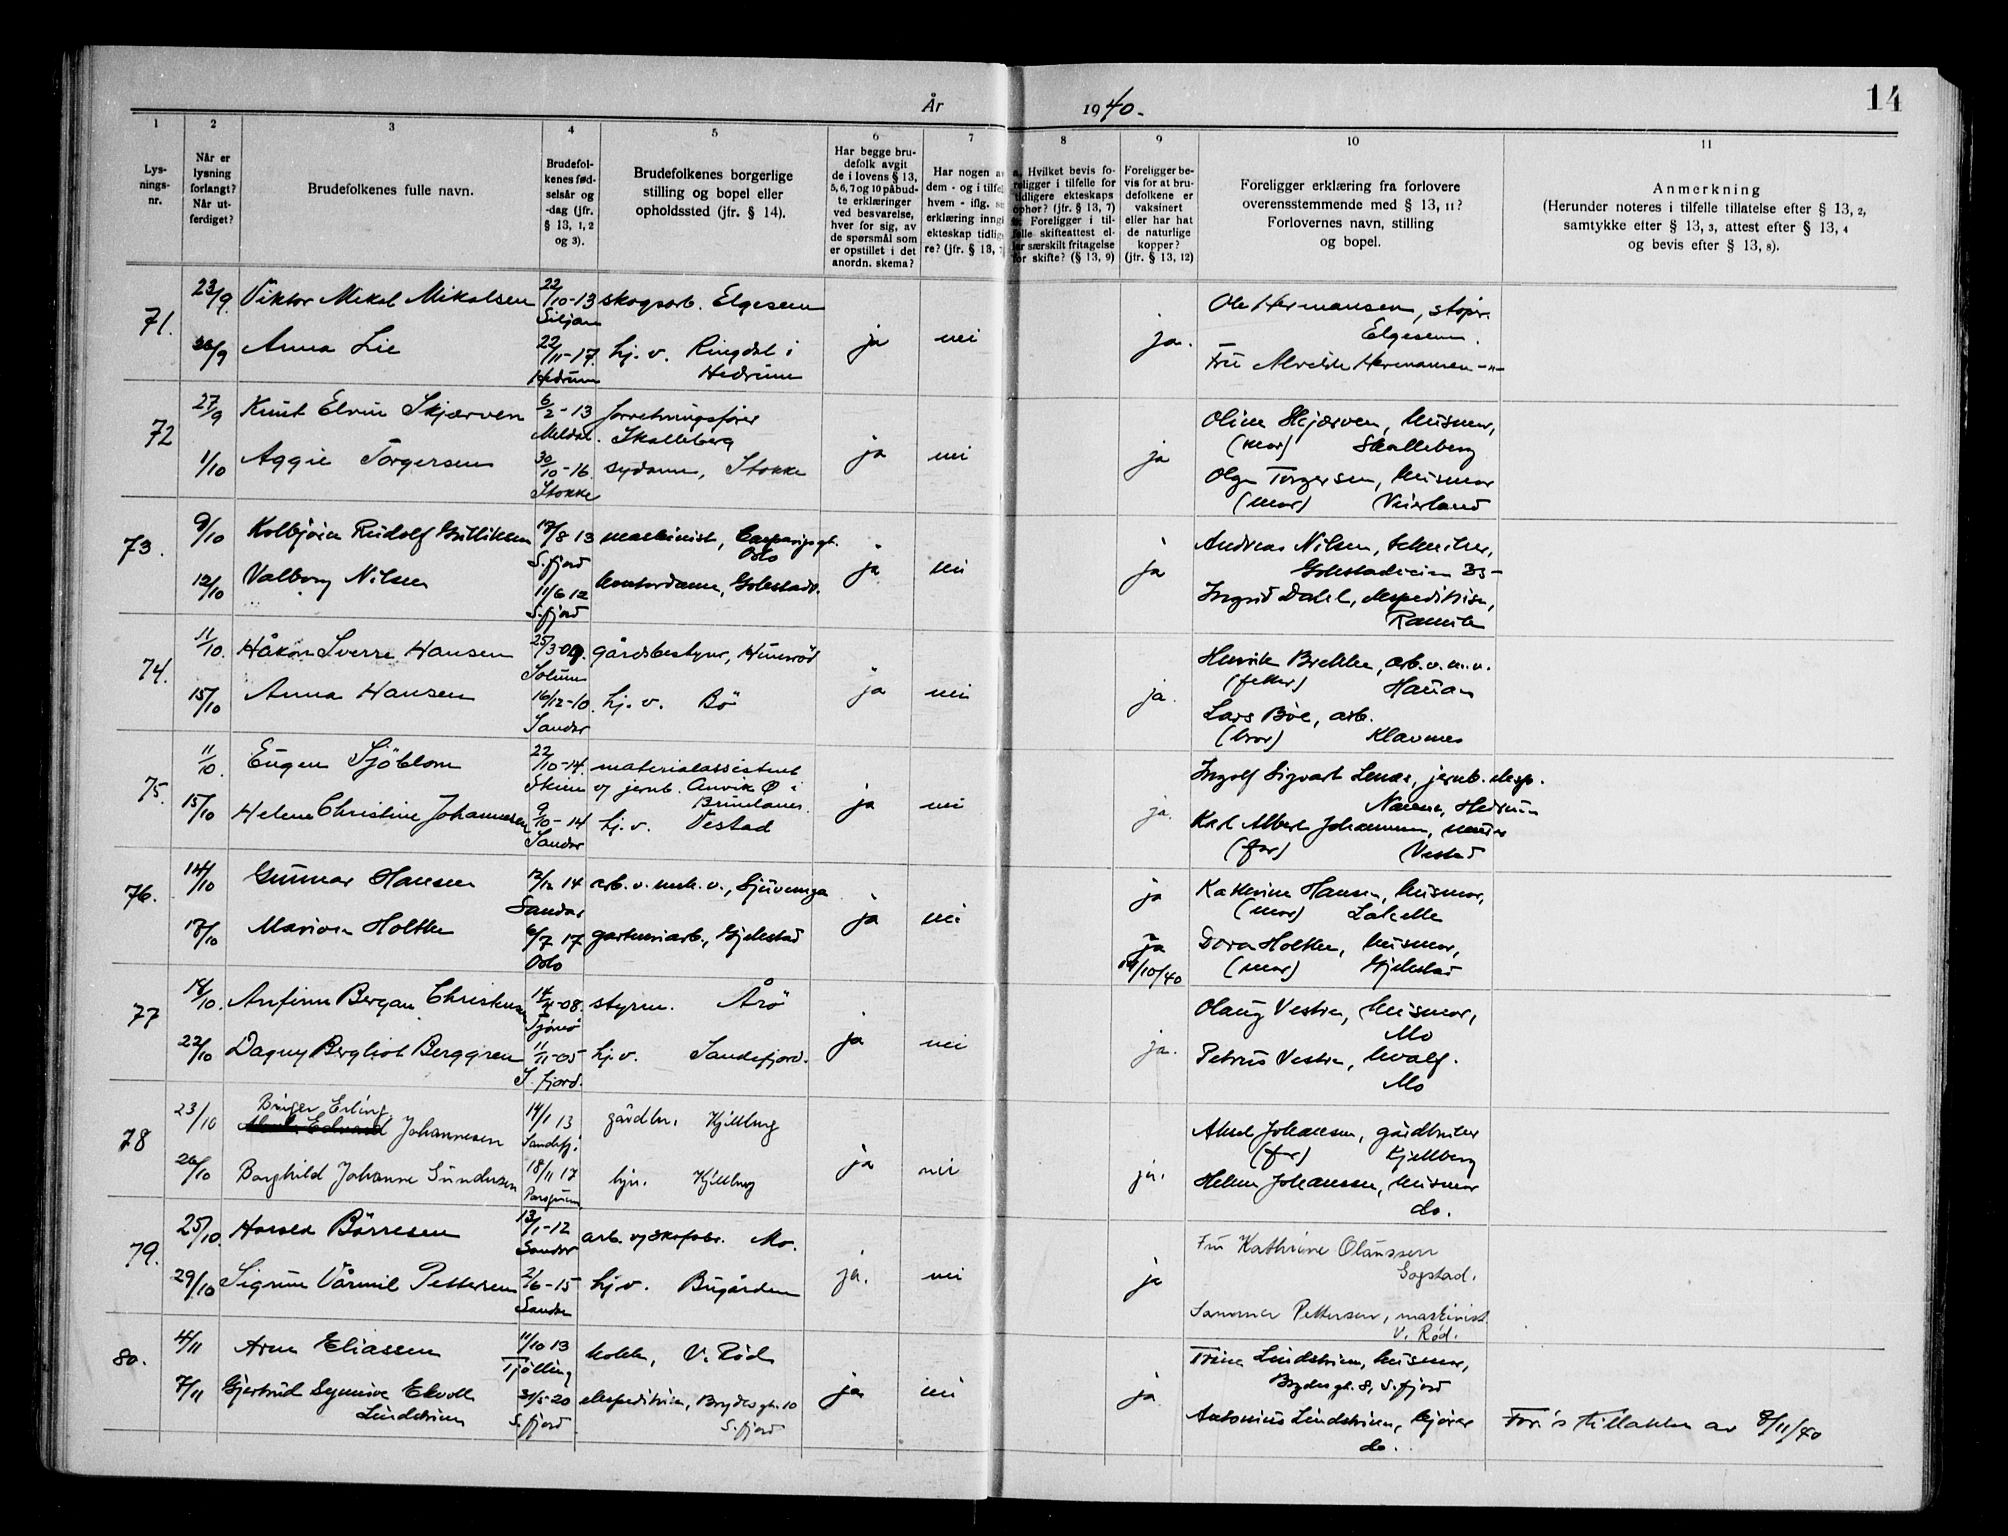 14
År 1940.
1 2 3 4 5 6 7 8 9 10 11
Lys-
nings-
nr.
Når er
lysning
forlangt?
Når ut-
ferdiget?
Brudefolkenes fulle navn.
Brudefol-
kenes fød-
selsår og
-dag (jfr.
§ 13, 1, 2
og 3).
Brudefolkenes borgerlige
stilling og bopel eller
opholdssted (jfr. § 14).
Har begge bru-
defolk avgit
de i lovens § 13,
5, 6, 7 og 10 påbud-
te erklæringer
ved besvarelse,
hver for sig, av
de spørsmål som
er opstillet i det
anordn. skema?
Har nogen av
dem - og i tilfel
hvem - iflg. s
erklæring inngå
ekteskap tidlig
re? (jfr. § 13, 7
a. Hvilket bevis fo-
religger i tilfelle for
tidligere ekteskaps
ophør? (jfr. § 13, 7)
Foreligger i til-
felle skifteattest el-
ler særskilt fritagelse
for skifte? (§ 13, 9)
Foreligger be-
vis for at bru-
defolkene er
vaksinert
eller har hat
de naturlige
kopper?
(jfr. § 13, 12)
Foreligger erklæring fra forlovere
overensstemmende med § 13, 11?
Forlovernes navn, stilling
og bopel.
Anmerkning
(Herunder noteres i tilfelle tillatelse efter § 13, 2,
samtykke efter § 13, 3, attest efter § 13, 4
og bevis efter § 13, 8).
71. 23/9. Viktor Mikal Mikalsen 22/10-13 skogsarb. Elgesem Ole Hermansen,
Siljan Elgesem.
26/9 Anna Lie 22/11-17. hj. v. Ringdal i ja nei ja. Fru Hermansen -"-
Hedrum Hedrum
72 27/9 Knut Elvin Skjærven 6/2-13 forretningsfører Oline Skjærven, husmor,
Meldal. Skalleberg (mor) Skalleberg
1/10 Aggie Torgersen 30/10-16 sydame, Stokke ja nei ja Olga Torgersen, husmor
Stokke (mor) Veierland
73. 9/10 Kolbjørn Rudolf Gulliksen 17/8 13 maskinist, Oslo Andreas Nilsen,
S.fjord
12/10 Valborg Nilsen 11/6 12 kontordame, ja nei ja Ingrid Dahl,
S.fjord
74. 11/10. Håkon Sverre Hansen 25/3-09. gårdsbestyrer, Henrik Brekke, arb. v. m.v.
Solum (fetter) Hauan
15/10 Anna Hansen 16/12-10. hj. v. Bö ja nei ja. Lars Böe, arb.
Sandar (bror) Klavenes
75. 11/10. Eugen Sjöblom 22/10-14. materialassistent Ingolf Sigvart jernb. eksp.
Skien v jernb. Anvik Ø i Hedrum
Brunlanes.
15/10 Helene Christine Johannesen 9/10-14 hj. v. Vestad ja nei ja. Karl Albert Johannesen, murer
Sandar (far) Vestad
76. 14/10 Gunnar Hansen 12/12 14 arb. v. mek. v., ja Kathrine Hansen, husmor,
Sandar (mor)
17/10 Marion Holtke 6/7 17 gartneriarb., Gjekstad ja nei ja Dora Holtke, husmor,
Oslo 19/10/40 (mor) Gjekstad
77 18/10. Arnfinn Bergan Christensen styrm. Årö Olaug Vestre, husmor,
Tjömö Mo
22/10 Dagny Bergliot Berggren 11/11-05 hj. v. Sandefjord. ja nei ja. Petrus Vestre, hvalf.
S. fjord. Mo
78 23/10 Birger Erling Johannesen 14/1 13 gårdbr. Kjellberg Johansen, gårdbruker
Sandefj. (far) Kjellberg
26/10 Borghild Johanne Gundersen 18/11 17 hjv. Kjellberg ja nei ja. Helene Johanssen, husmor
Porsgrunn do.
79. 25/10. Harald Börresen 13/1-12 arb. Mo. Fru Kathrine Olaussen
Sandar Gogstad.
29/10 Sigrun Vårmil Pettersen 21/6-15 hj.v. Bugården ja. nei ja Pettersen, maskinist
Sandar V. Rød.
80. 4/11 Arne Eliassen 11/10 13 kokk, V. Röd Trine Lindstrøm, husmor,
Tjölling Brydes gt. 8, S.fjord
7/11 Gjertrud Synnøve Ekvoll 31/5-20 ekspeditrise, Brydes gt. 10 ja nei ja Antonius Lindstrøm, kjører
Lindstrøm S.fjord S.fjord do. For's tillatelse av 8/11/40